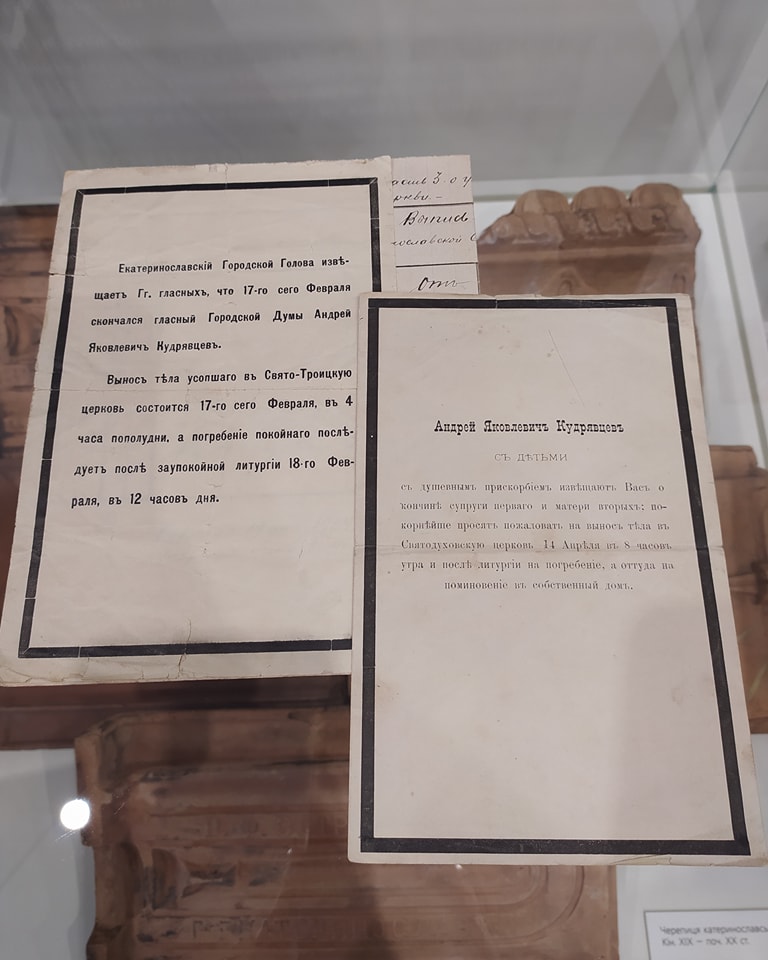 Екатеринославскій Городской Голова извѣ-
щаетъ Гг. гласныхъ, что 17-го сего Февраля
скончался гласный Городской Думы Андрей
Яковлевичъ Кудрявцевъ.
Выносъ тѣла усопшаго въ Свято-Троицкую
церковь состоится 17-го сего Февраля, въ 4
часа пополудни, а погребеніе покойнаго послѣ-
дуетъ послѣ заупокойной литургіи 18-го Фев-
раля, въ 12 часовъ дня.
Выпись
Андрей Яковлевичъ Кудрявцевъ
СЪ ДѢТЬМИ
съ душевнымъ прискорбіемъ извѣщаютъ Васъ о
кончинѣ супруги перваго и матери вторыхъ; по-
корнѣйше просятъ пожаловать на выносъ тѣла въ
Святодуховскую церковь 14 Апрѣля въ 8 часовъ
утра и послѣ литургіи на погребеніе, а оттуда на
поминовеніе въ собственный домъ.
Черепиця катеринославсь
Кін. ХІХ – поч. ХХ ст.